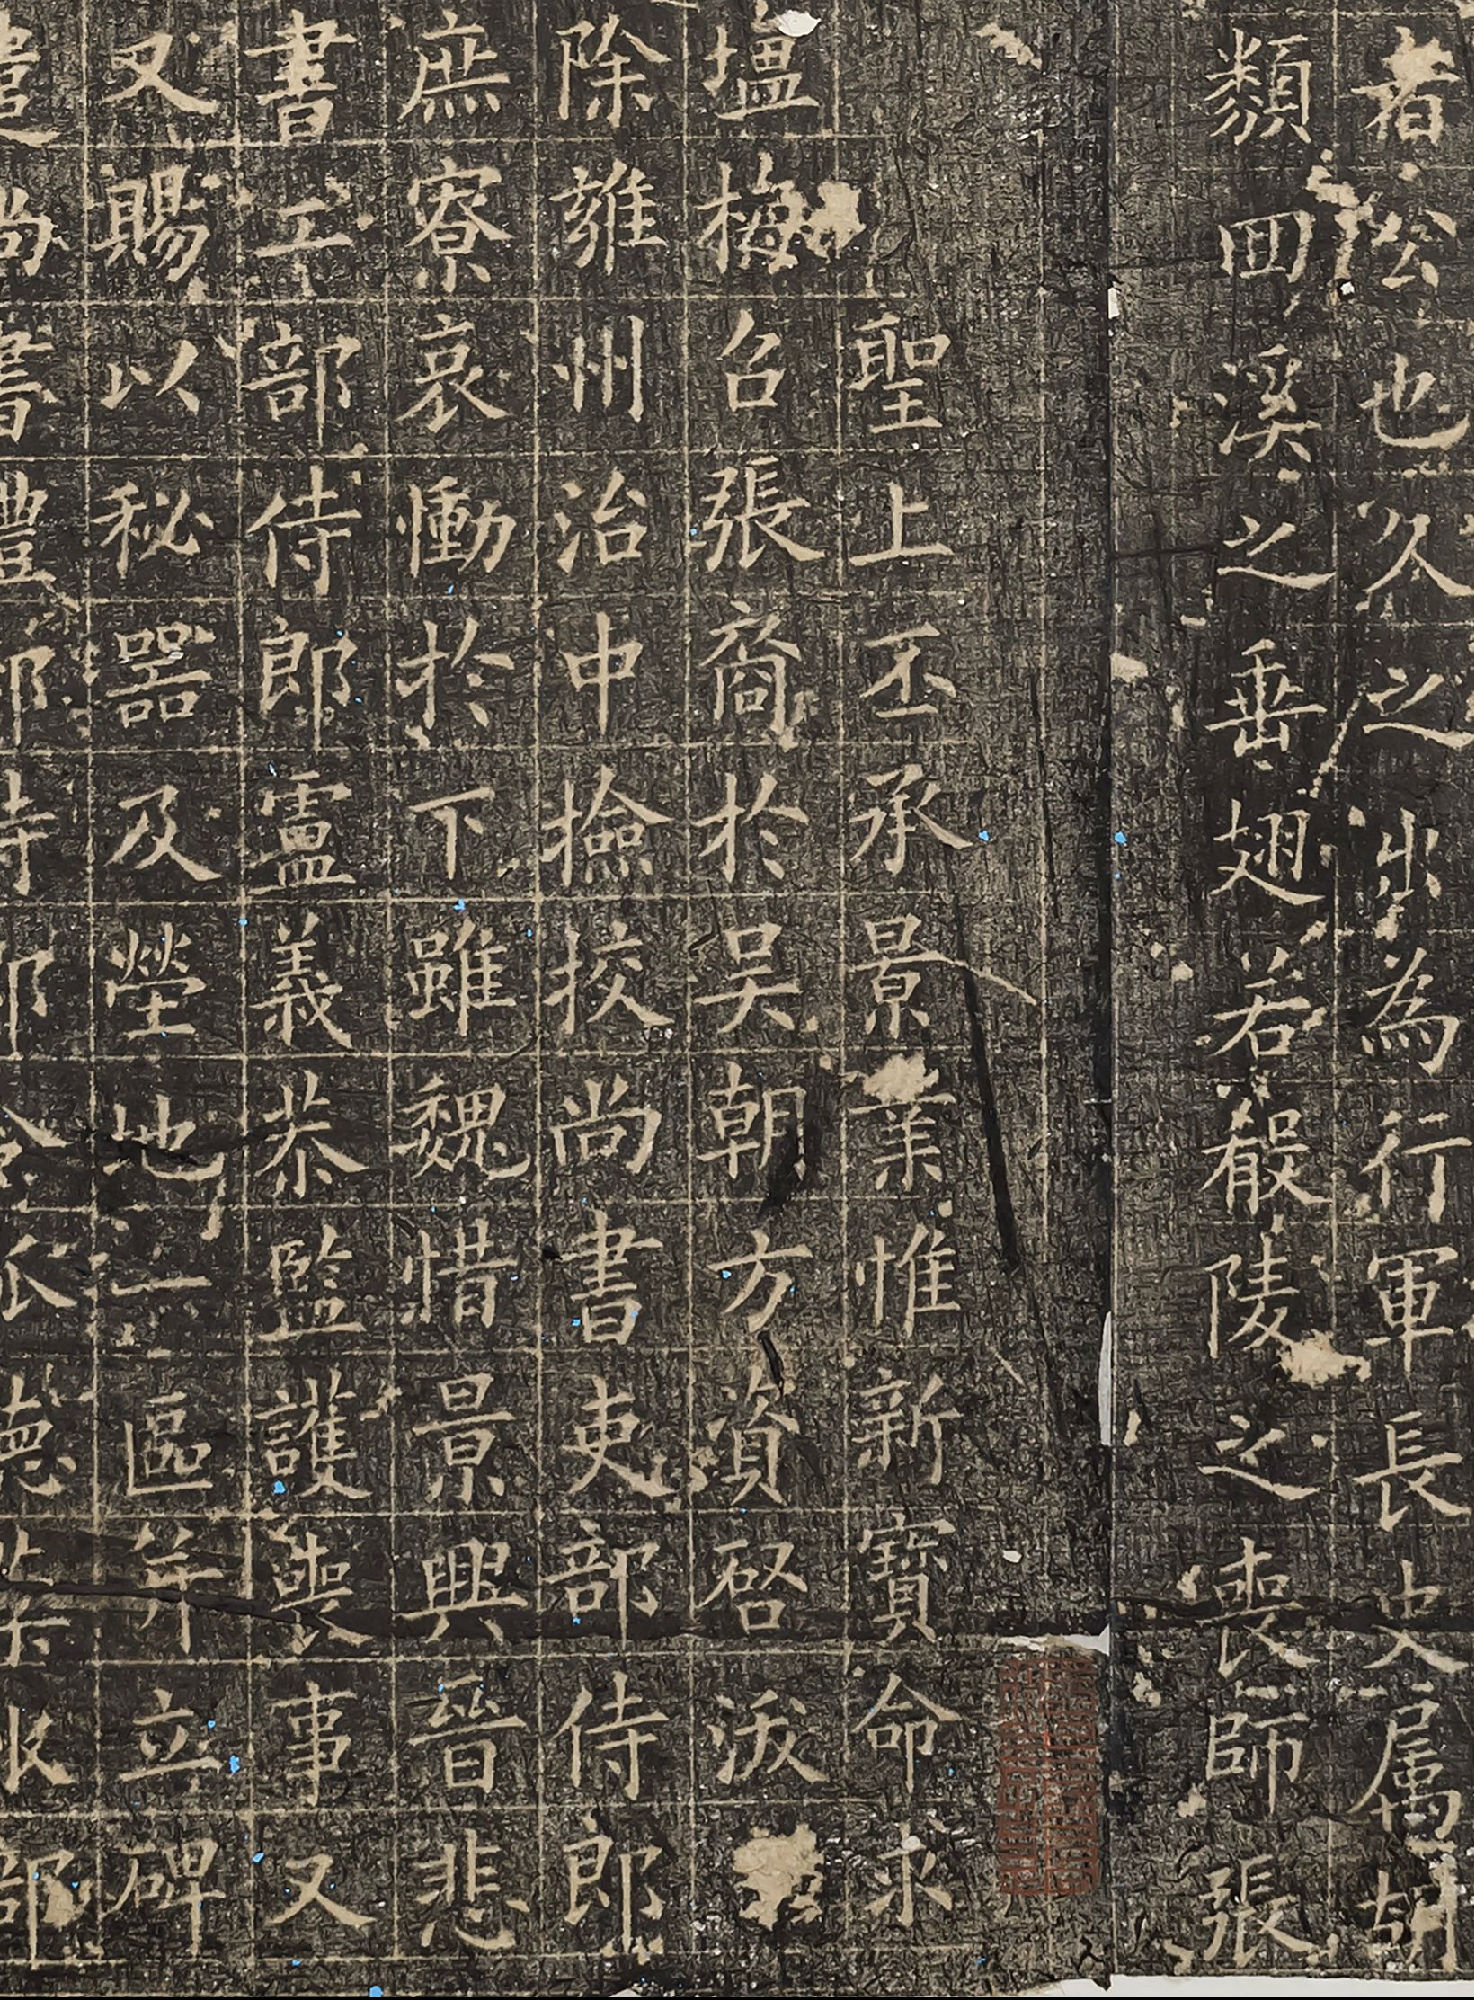 者公也久之出為行軍長史属胡
類回溪之垂翅若殽陵之喪師張
聖上丕承景業惟新寶命求
塩梅召張商於吴朝方資啓沃
除雍州治中撿挍尚書吏部侍郎
庶寮哀慟於下雖魏惜景興晉悲
書工部侍郎盧義恭監護喪事又
又賜以秘器及塋地一區并立碑
遣尚書禮部侍郎令狐德棻